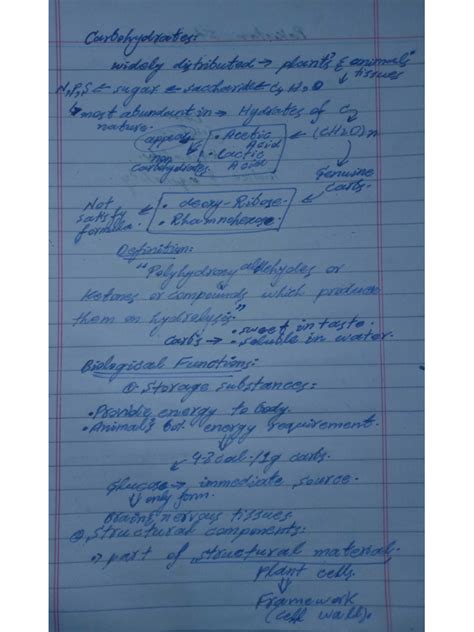 Carbohydrates:
widely distributed → plants & animals
tissues
N,P,S ← sugar ← saccharide ← C,H,O
most abundant in → Hydrates of C
nature.
• Acetic Acid ← (CH2O)n
• Lactic Acid
non carbohydrates
Genuine
carbs.
Not satisfy formula. ← • deoxy-Ribose.
• Rhamnohexose.
Definition:
"Polyhydroxy aldehydes or
Ketones or compounds which produce
them on hydrolysis"
carbs → • sweet in taste.
• soluble in water.
Biological Functions:
① Storage substances:
• Provide energy to body.
• Animals energy requirement.
Glucose → immediate source.
only form.
Brain, nervous tissues
② Structural components:
→ part of structural material.
plant cells.
Framework
(cell wall).